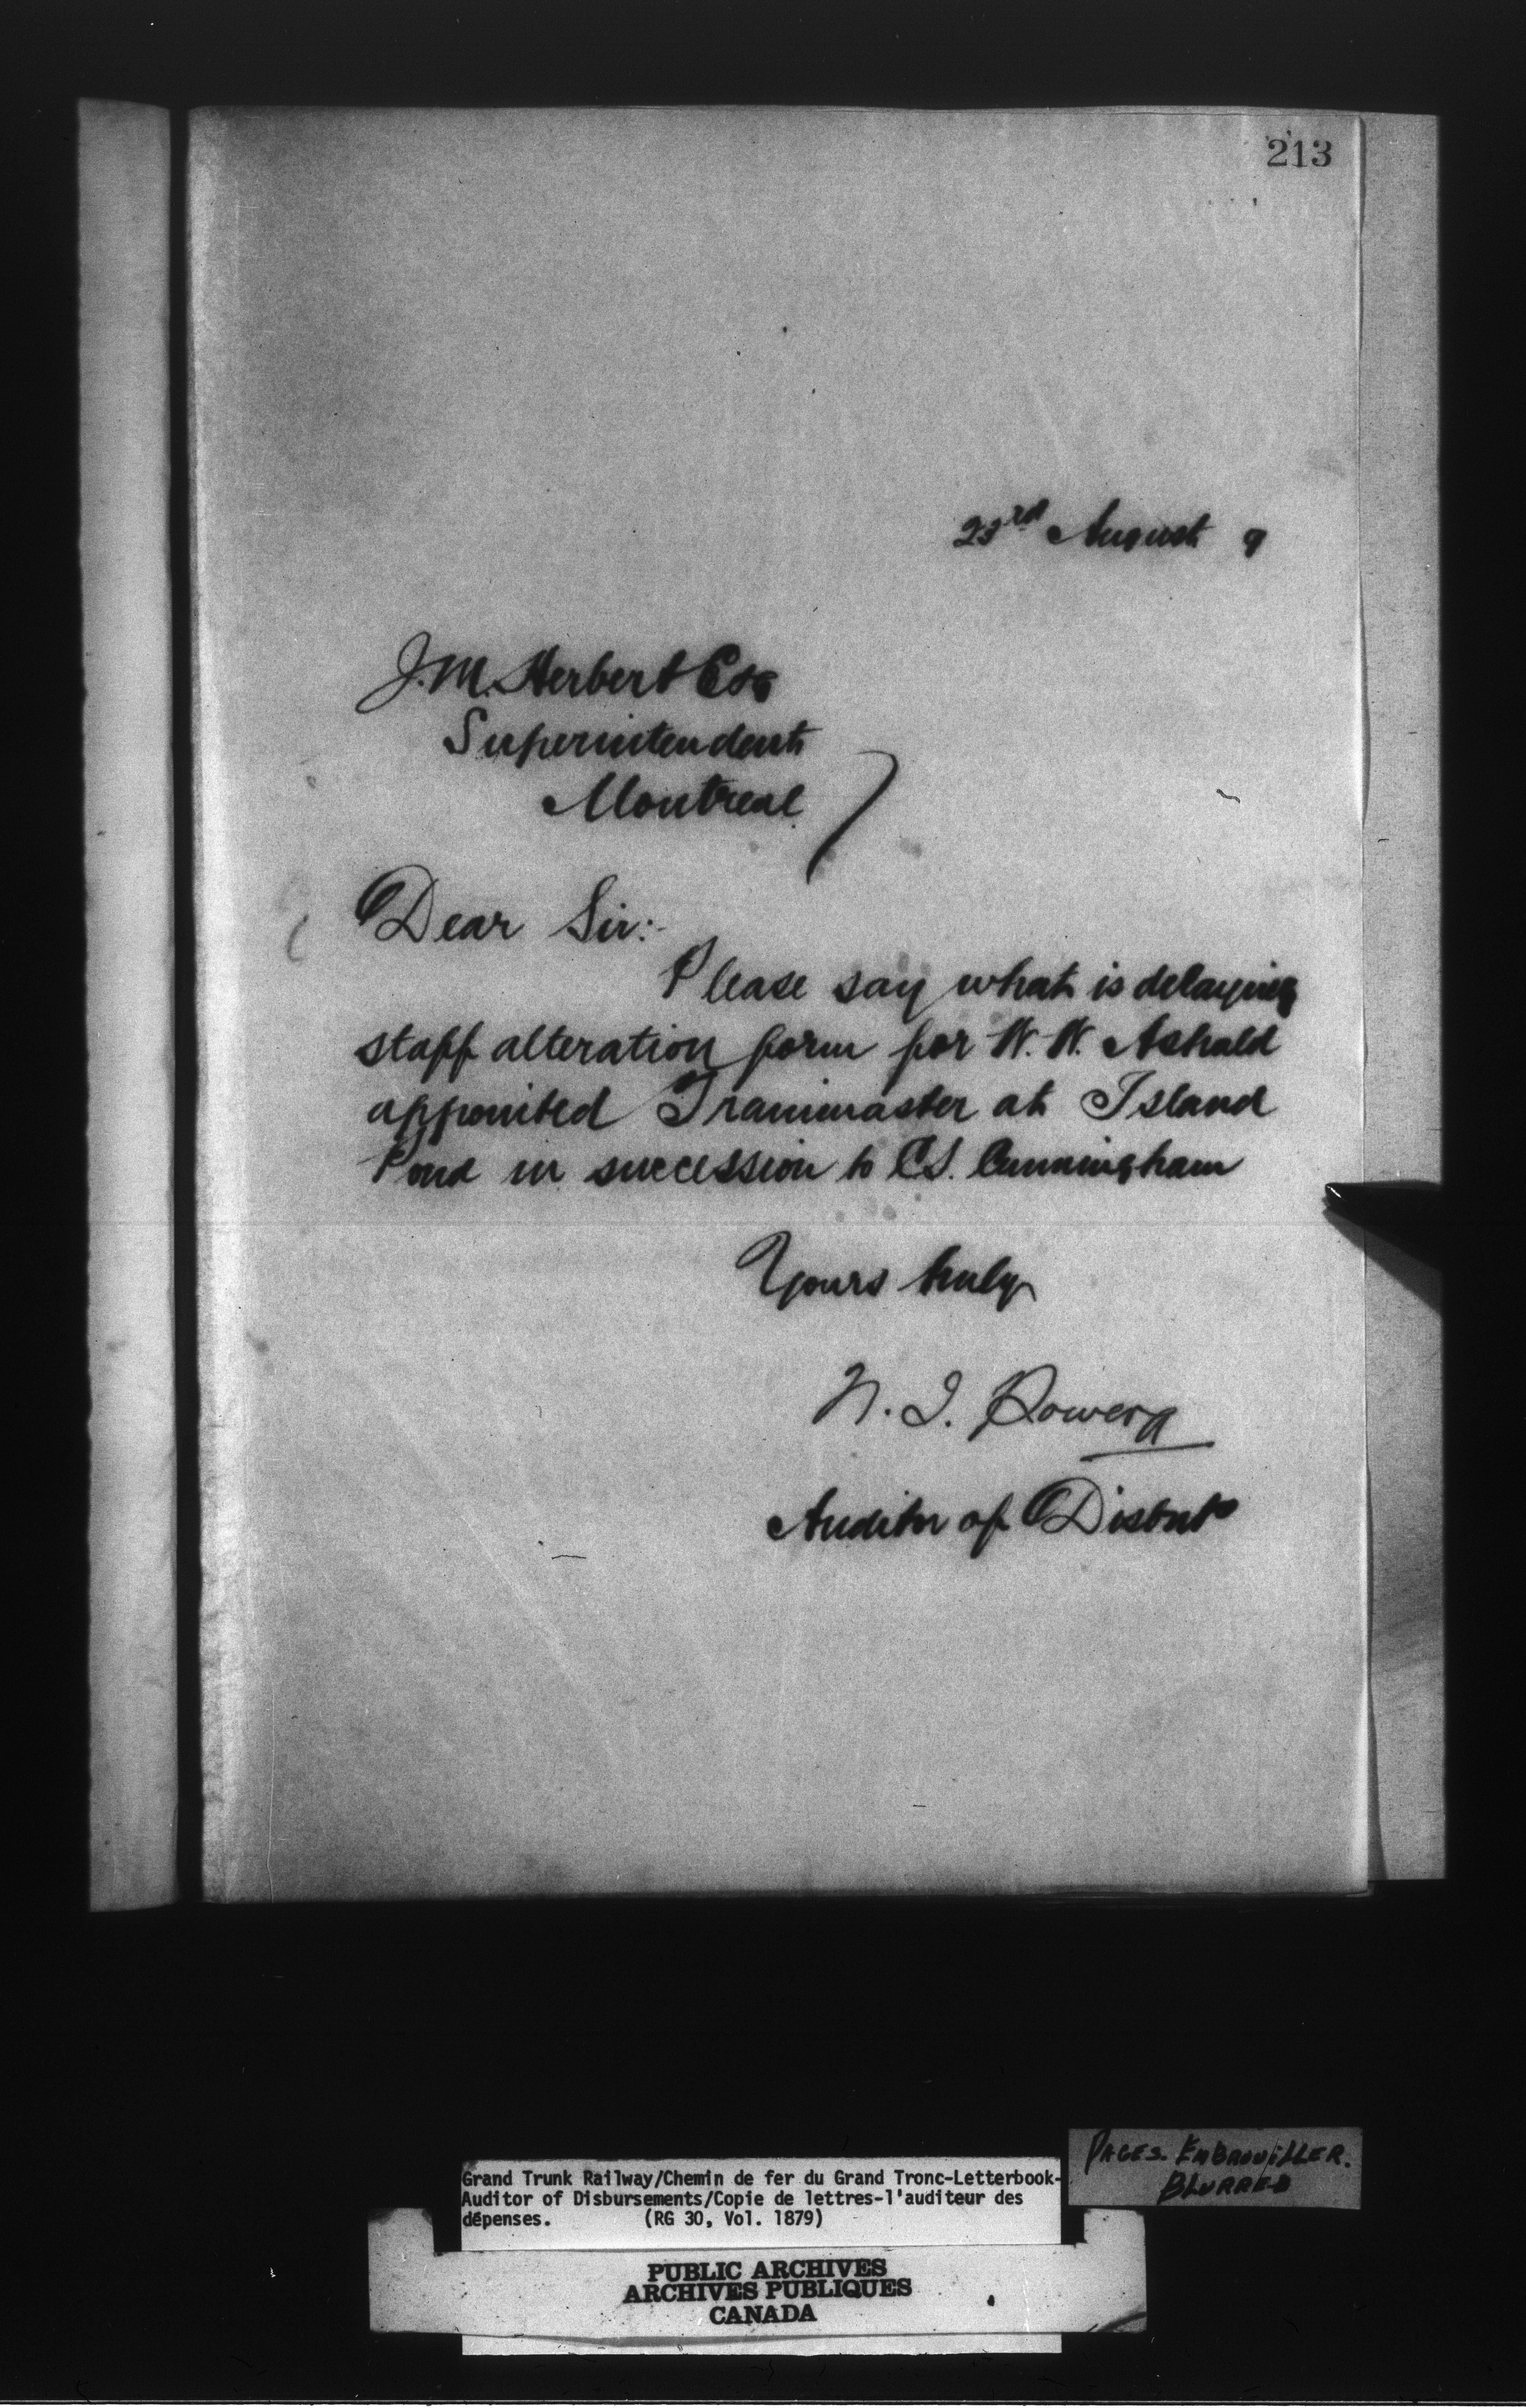 213
23rd August 9
J. M. Herbert Esq
Superintendent
Montreal
Dear Sir:-
Please say what is delaying
staff alteration form for W. W. Ashald
appointed Trainmaster at Island
Pond in succession to C.S. Cunningham
Yours truly
N. J. Power
Auditor of Disbts
PAGES. EMBROUILLER.
BLURRED
Grand Trunk Railway/Chemin de fer du Grand Tronc-Letterbook-
Auditor of Disbursements/Copie de lettres-l'auditeur des
dépenses. (RG 30, Vol. 1879)
PUBLIC ARCHIVES
ARCHIVES PUBLIQUES
CANADA